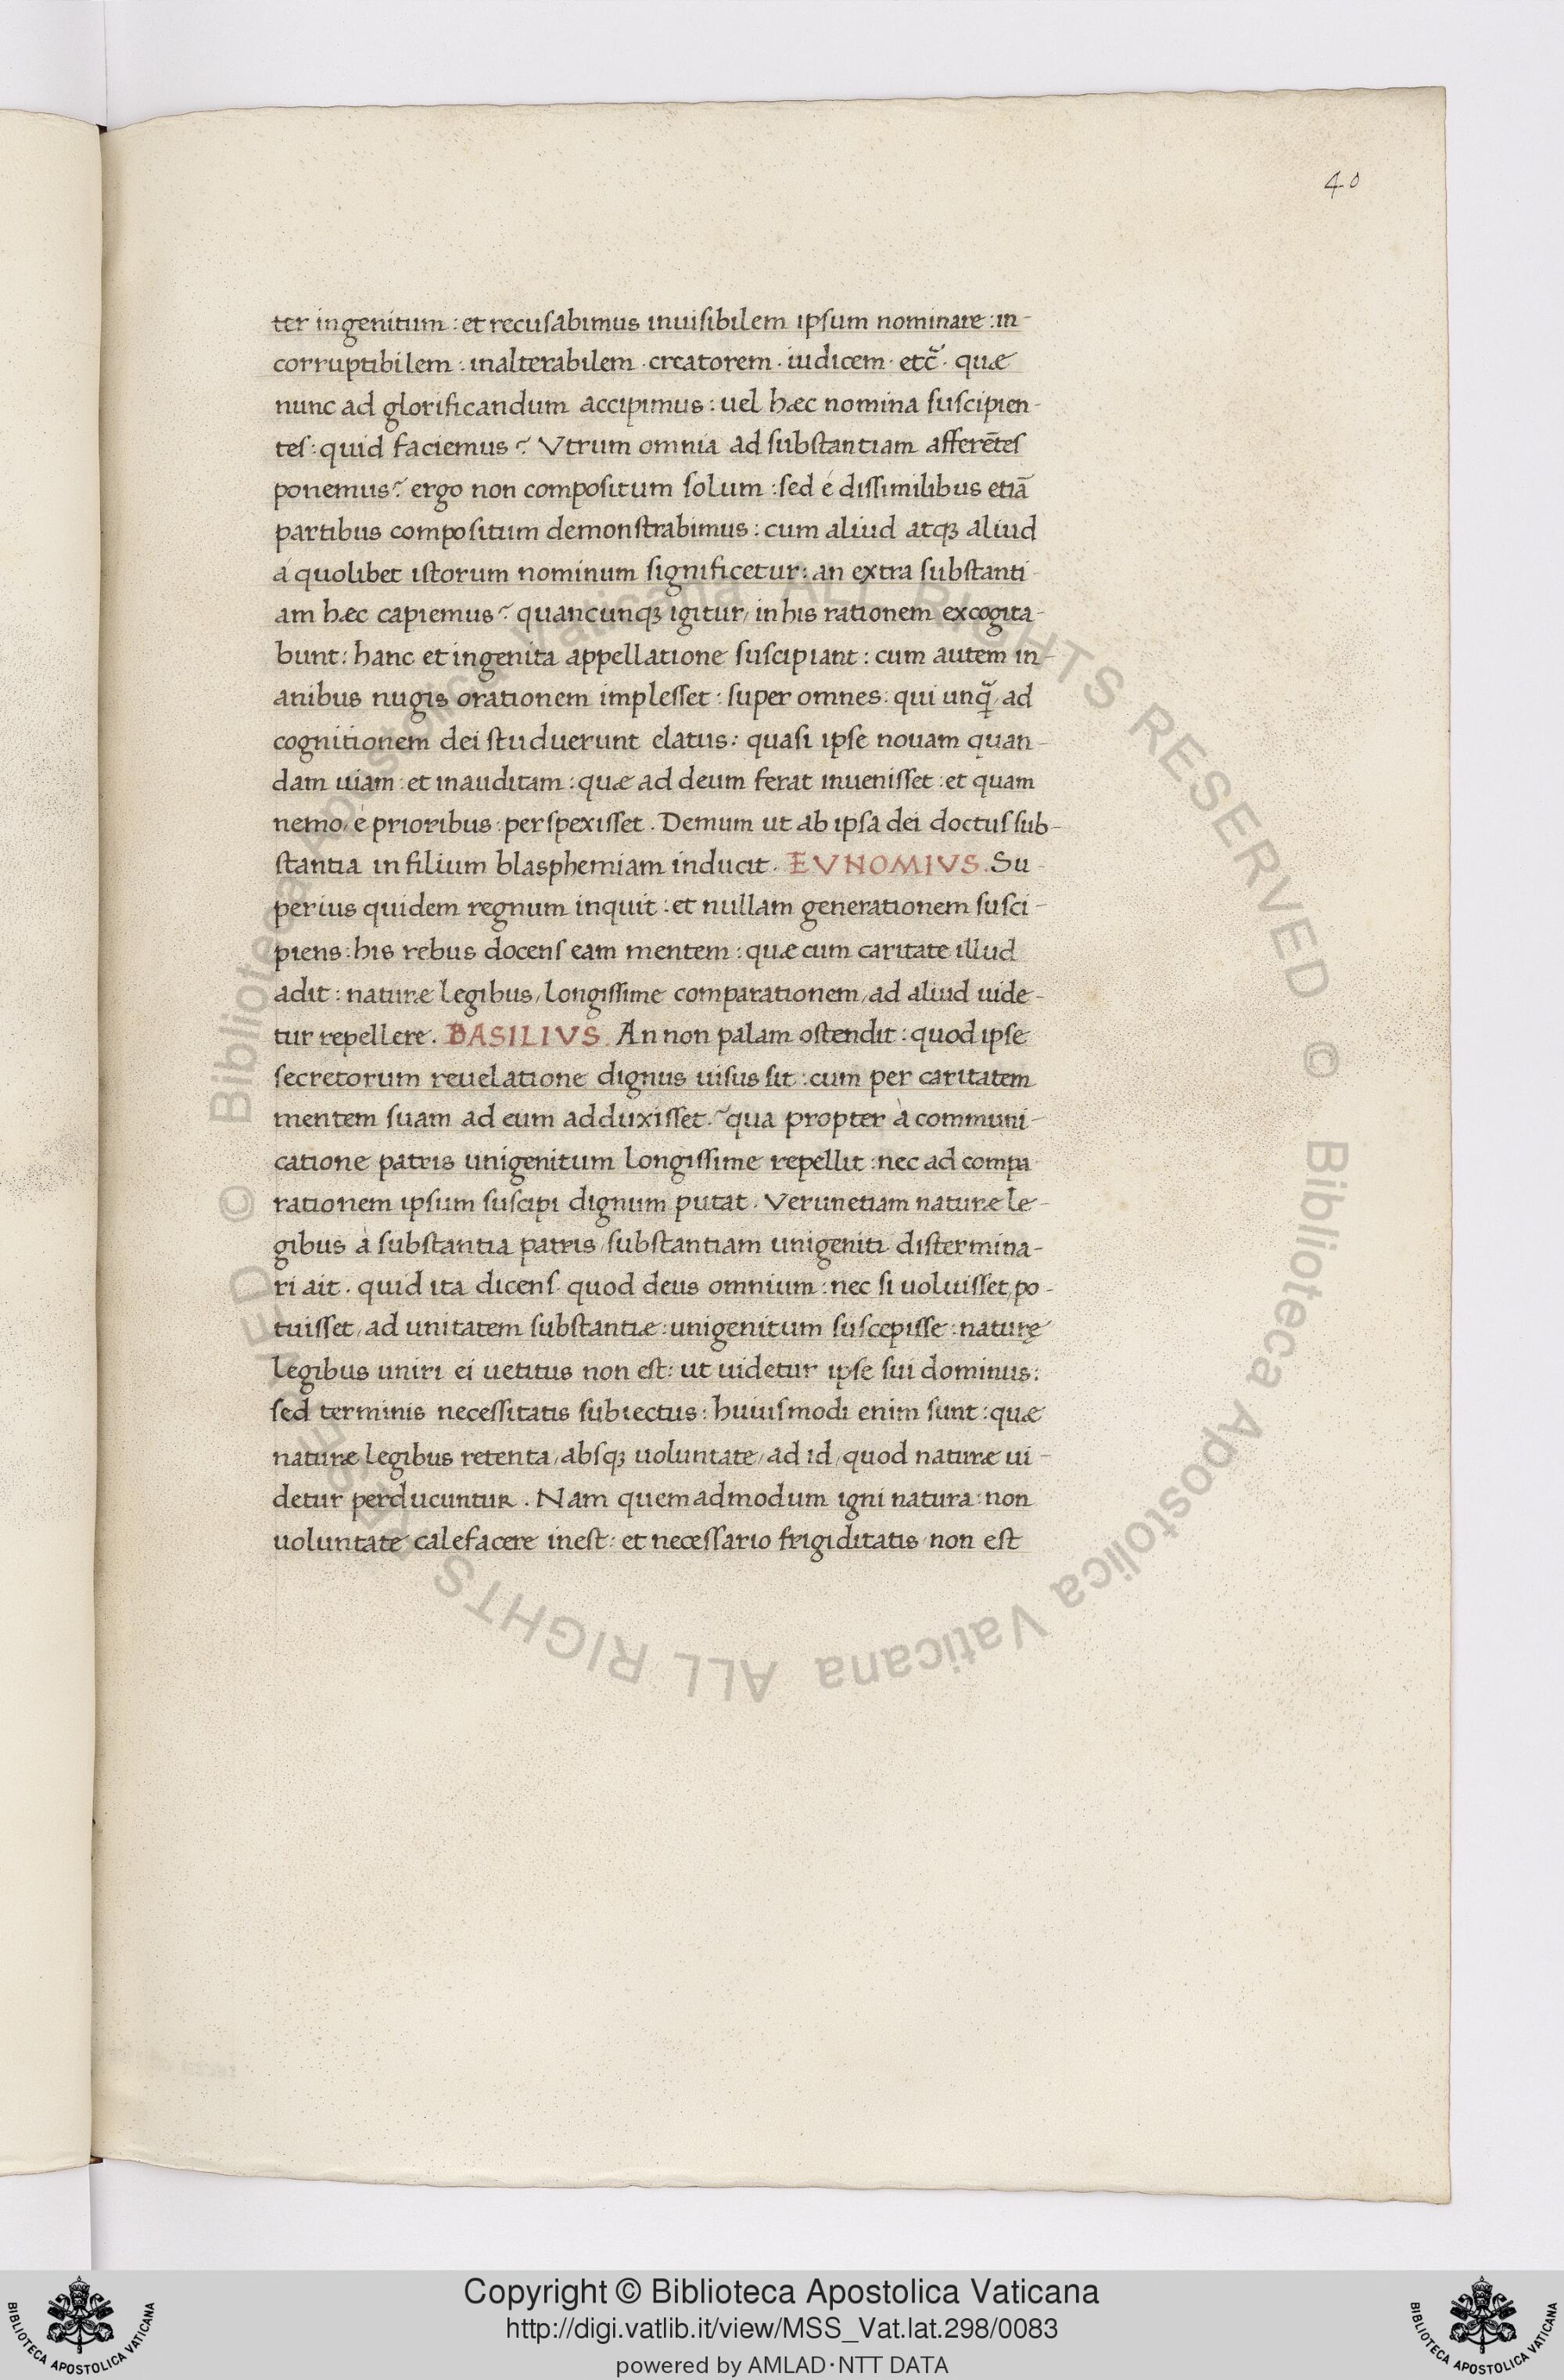 40
ter ingenitum : et recusabimus inuisibilem ipsum nominare : in-
corruptibilem : inalterabilem · creatorem · iudicem · etc̃ · quæ
nunc ad glorificandum accipimus : uel hæc nomina suscipien-
tes : quid faciemus? Vtrum omnia ad substantiam afferẽtes
ponemus? ergo non compositum solum : sed é dissimilibus etiã
partibus compositum demonstrabimus : cum aliud atqȝ aliud
a quolibet istorum nominum significetur : an extra substanti-
am hæc capiemus? quancunqȝ igitur, in his rationem excogita-
bunt : hanc et ingenita appellatione suscipiant : cum autem in-
anibus nugis orationem implesset : super omnes : qui unq̃, ad
cognitionem dei studuerunt elatus : quasi ipse nouam quan-
dam uiam : et inauditam : quæ ad deum ferat inuenisset : et quam
nemo, é prioribus : perspexisset . Demum ut ab ipsa dei doctus sub-
stantia in filium blasphemiam inducit . EVNOMIVS . Su-
perius quidem regnum inquit : et nullam generationem susci-
piens : his rebus docens eam mentem : quæ cum caritate illud
adit : naturæ legibus, longissime comparationem, ad aliud uide-
tur repellere . BASILIVS . An non palam ostendit : quod ipse
secretorum reuelatione dignus uisus sit : cum per caritatem
mentem suam ad eum adduxisset? qua propter à communi-
catione patris unigenitum longissime repellit : nec ad compa
rationem ipsum suscipi dignum putat . Verunetiam naturæ le-
gibus à substantia patris, substantiam unigeniti distermina-
ri ait . quid ita dicens · quod deus omnium : nec si uoluisset, po-
tuisset, ad unitatem substantiæ : unigenitum suscepisse : naturę
legibus uniri ei uetitus non est : ut uidetur ipse sui dominus :
sed terminis necessitatis subiectus : huiusmodi enim sunt : quæ
naturæ legibus retenta, absqȝ uoluntate, ad id, quod naturæ ui-
detur perducuntur . Nam quemadmodum igni natura : non
uoluntate calefacere inest : et necessario frigiditatis non est
© Biblioteca Apostolica Vaticana ALL RIGHTS RESERVED
© Biblioteca Apostolica Vaticana ALL RIGHTS RESERVED
Copyright © Biblioteca Apostolica Vaticana
http://digi.vatlib.it/view/MSS_Vat.lat.298/0083
powered by AMLAD·NTT DATA
BIBLIOTECA APOSTOLICA VATICANA
BIBLIOTECA APOSTOLICA VATICANA